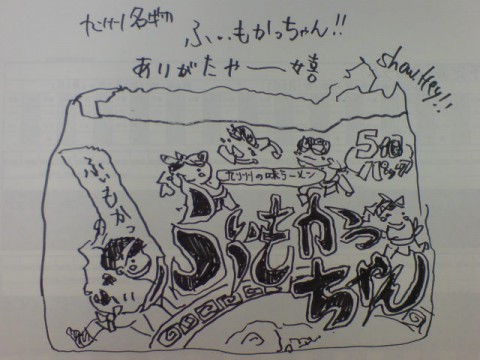 九州名物
ふぃもかっちゃん!!
ありがたやー嬉
showHey!!
5個
パック
九州の味ラーメン
ふぃもかっ
ふぃもかっ
ちゃん